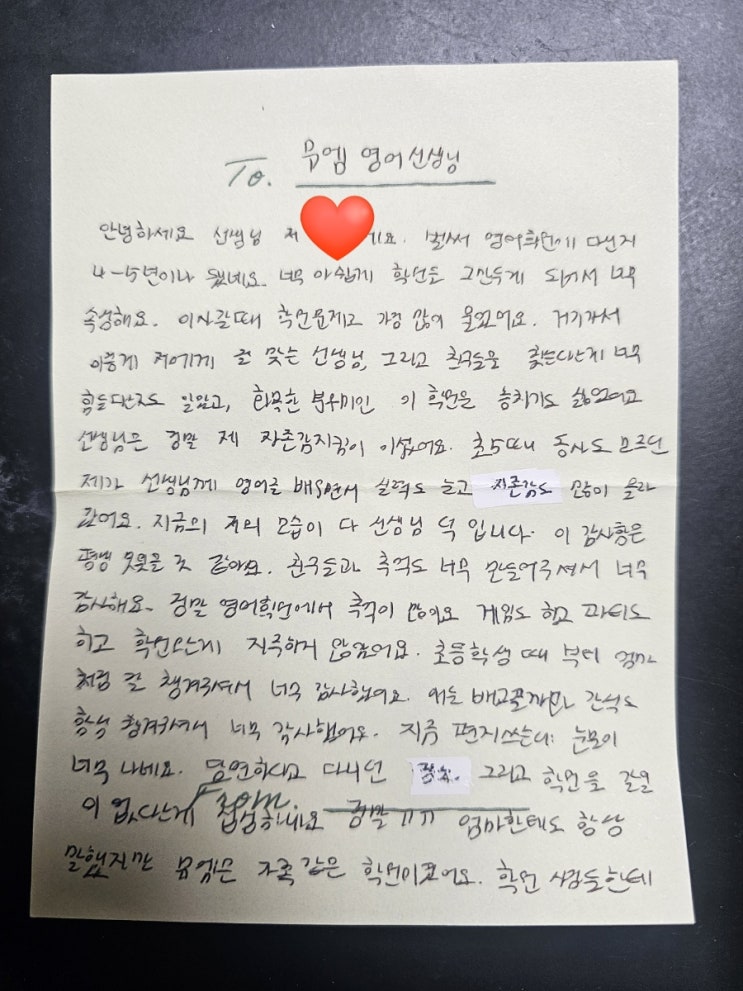 To. 뮤엠 영어선생님
안녕하세요 선생님 저 에요. 벌써 영어학원에 다닌지
4-5년이나 됐네요. 너무 아쉽게 학원을 그만두게 되어서 너무
속상해요. 이사갈때 학원문제로 가장 많이 울었어요. 거기가서
이렇게 저에게 잘 맞는 선생님, 그리고 친구들을 찾는다는게 너무
힘들단지도 알았고, 화목한 분위기인 이 학원을 놓치기도 싫었어요
선생님은 정말 제 자존감지킴이 이셨어요. 초5때 동사도 모르던
제가 선생님께 영어를 배우면서 실력도 늘고 자존감도 많이 올라
갔어요. 지금의 저의 모습이 다 선생님 덕 입니다. 이 감사함은
평생 못잊을 것 같아요. 친구들과 추억도 너무 만들어주셔서 너무
감사해요. 정말 영어학원에서 추억이 많아요 게임도 하고 파티도
하고 학원오는게 지루하지 않았어요. 초등학생 때 부터 엄마
처럼 잘 챙겨주셔서 너무 감사했어요. 저는 배고플까봐 간식도
항상 챙겨주셔서 너무 감사했어요. 지금 편지쓰는데 눈물이
너무 나네요. 당연하시고 다니던 그리고 학원을 갈일
이 없다는게 From. 섭섭하네요 정말 ㅠㅠ 엄마한테도 항상
말했지만 뮤엠은 가족 같은 학원이였어요. 학원 사람들한테